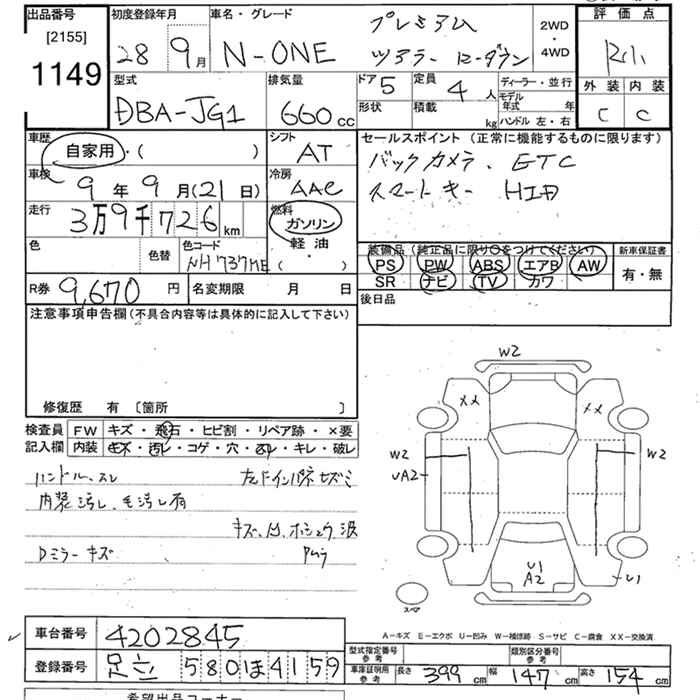 出品番号 初度登録年月 車名・グレード 評価点
[2155]
1149
28 9月 N-ONE プレミアム
ツアラー ローダウン
2WD
・
4WD
外装 内装
C C
型式 排気量 ドア 定員 ディーラー・並行
DBA-JG1 660cc 5 4人
モデル年式 年
形状 積載 kg ハンドル 左・右
車歴 シフト セールスポイント(正常に機能するものに限ります)
自家用・( ) AT バックカメラ、ETC
車検 冷房 スマートキー HID
9年9月(21日) AAC
走行 燃料
3万9千726km ガソリン
軽油
・
( )
色 色替 色コード
NH737ME
装備品(純正品に限り○をつけてください) 新車保証書
PS PW ABS エアB AW 有・無
SR ナビ TV カワ
R券 9,670円 名変期限 月 日 後日品
注意事項申告欄(不具合内容等は具体的に記入して下さい)
修復歴 有〔箇所 〕
検査員 FW キズ・飛石・ヒビ割・リペア跡・×要
記入欄 内装 キズ・汚レ・コゲ・穴・スレ・キレ・破レ
ハンドルスレ
内装汚レ、毛汚レ有
Dミラーキズ
W2
XX XX
W2 W2
UA2
U1
A2
U1
スペア
A-キズ E-エクボ U-凹み W-補修跡 S-サビ C-腐食 XX-交換済
車台番号 4202845
登録番号 足立 580 ほ 4159
型式指定番号 参考 類別区分番号 参考
車庫証明用 参考 長さ 399cm 幅 147cm 高さ 154cm
希望出品コーナー